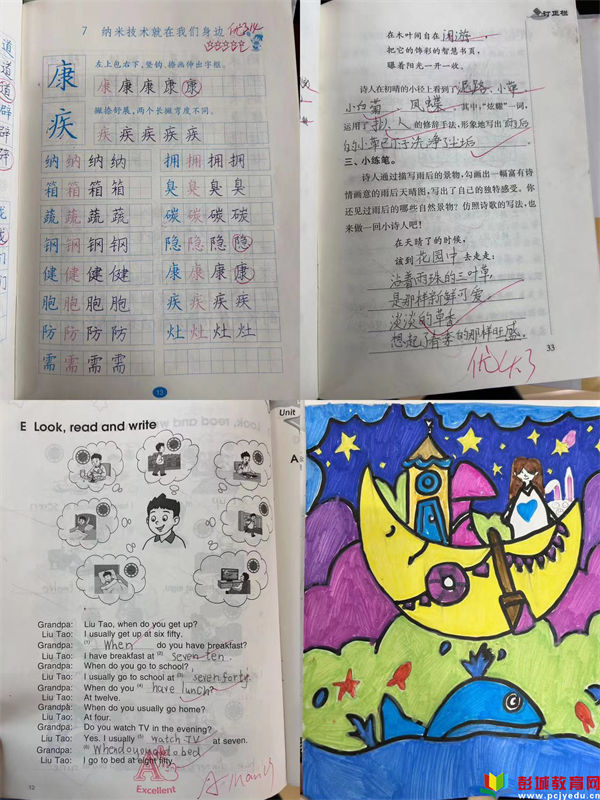 7 纳米技术就在我们身边
左上包右下，竖钩、捺画伸出字框。
康
康 康 康 康 康
撇捺舒展，两个长撇弯度不同。
疾
疾 疾 疾 疾 疾
纳 纳 纳 纳 拥 拥 拥 拥
箱 箱 箱 箱 臭 臭 臭 臭
蔬 蔬 蔬 蔬 碳 碳 碳 碳
钢 钢 钢 钢 隐 隐 隐 隐
健 健 健 健 康 康 康 康
胞 胞 胞 胞 疾 疾 疾 疾
防 防 防 防 灶 灶 灶 灶
需 需 需 需
13
订正栏
在木叶间自在闲游，
把它的饰彩的智慧书页，
曝着阳光一开一收。
诗人在初晴的小径上看到了泥路、小草、
小白菊、凤蝶，其中，“炫耀”一词，
运用了拟人的修辞手法，形象地写出雨后
的小草已不再洗净了尘垢
三、小练笔。
诗人通过描写雨后的景物，勾画出一幅富有诗
情画意的雨后天晴图，写出了自己的独特感受。你
还见过雨后的哪些自然景物？仿照诗歌的写法，也
来做一回小诗人吧！
在天晴了的时候，
该到花园中去走走：
沾着雨珠的三叶草，
是那样新鲜可爱。
淡淡的草香，
想起了春来的那样旺盛。
33
E Look, read and write
Unit
A
Grandpa: Liu Tao, when do you get up?
Liu Tao: I usually get up at six fifty.
Grandpa: (1) When do you have breakfast?
Liu Tao: I have breakfast at (2) seven ten.
Grandpa: When do you go to school?
Liu Tao: I usually go to school at (3) seven forty.
Grandpa: When do you (4) have lunch?
Liu Tao: At twelve.
Grandpa: When do you usually go home?
Liu Tao: At four.
Grandpa: Do you watch TV in the evening?
Liu Tao: Yes. I usually (5) watch TV at seven.
Grandpa: (6) When do you go to bed
Liu Tao: I go to bed at eight fifty.
12
Excellent
彭城教育网
www.pcjyedu.cn